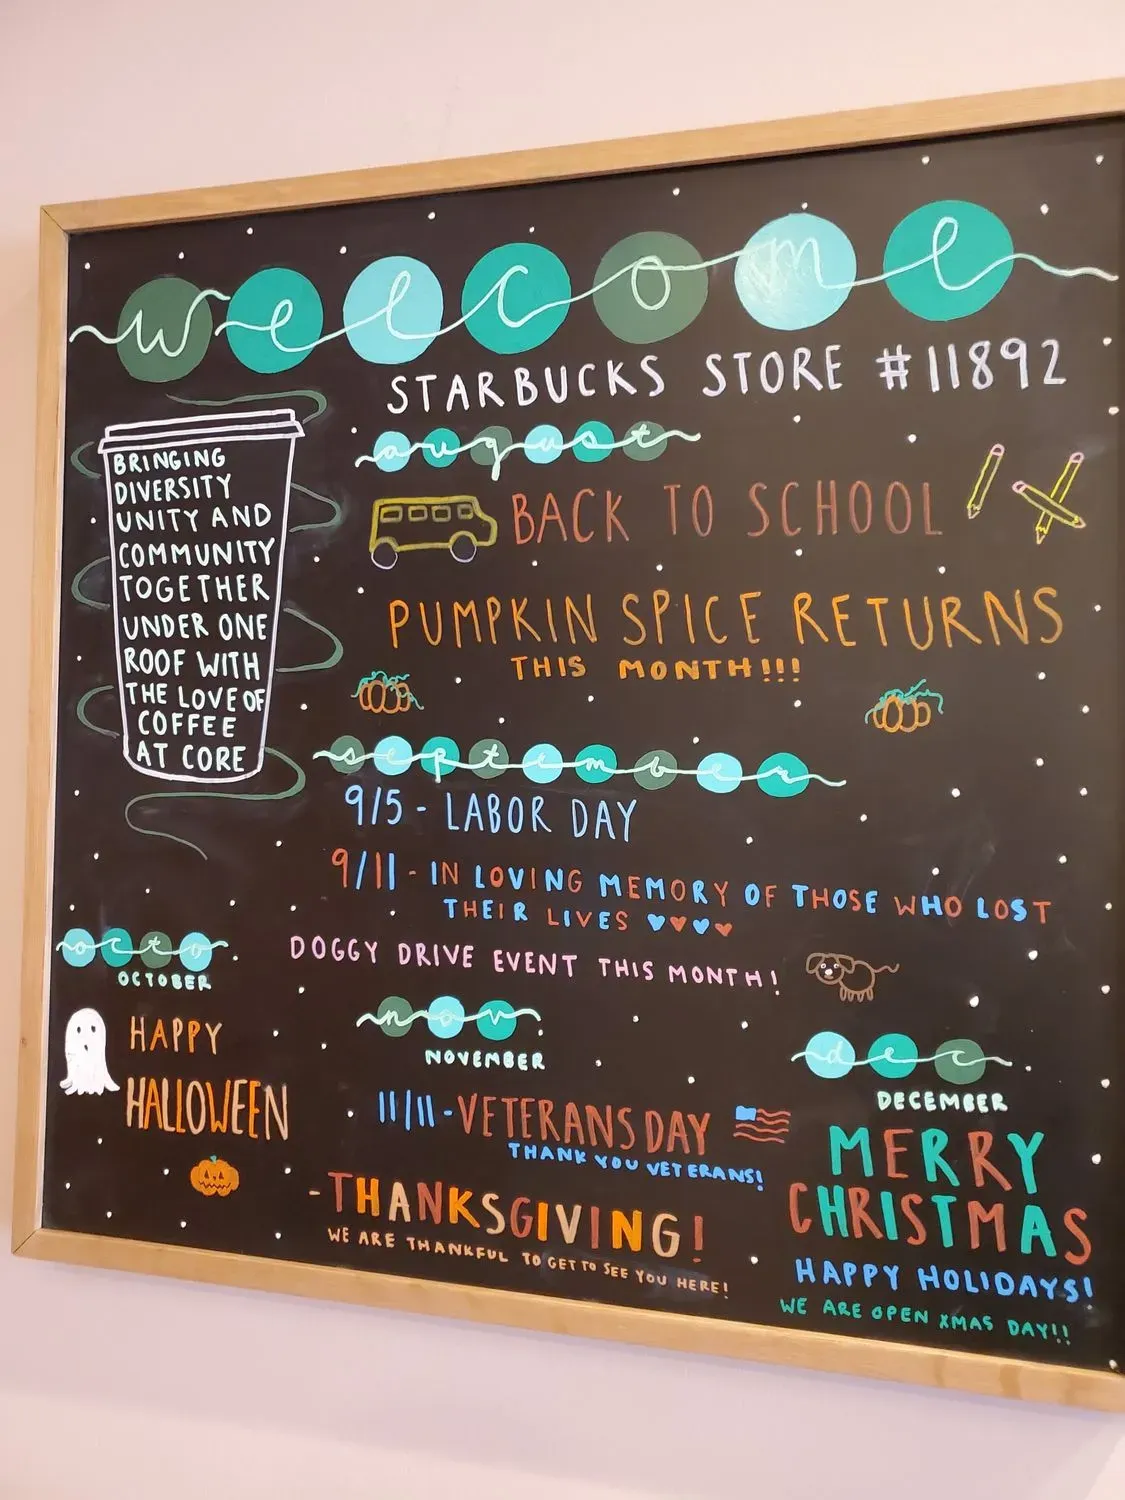 welcome
STARBUCKS STORE #11892
BRINGING
DIVERSITY
UNITY AND
COMMUNITY
TOGETHER
UNDER ONE
ROOF WITH
THE LOVE OF
COFFEE
AT CORE
august
BACK TO SCHOOL
PUMPKIN SPICE RETURNS
THIS MONTH!!!
september
9/5 - LABOR DAY
9/11 - IN LOVING MEMORY OF THOSE WHO LOST
THEIR LIVES ♥♥♥♥
DOGGY DRIVE EVENT THIS MONTH!
octo.
OCTOBER
HAPPY
HALLOWEEN
nov.
NOVEMBER
11/11 - VETERANS DAY
THANK YOU VETERANS!
- THANKSGIVING!
WE ARE THANKFUL TO GET TO SEE YOU HERE!
dec.
DECEMBER
MERRY
CHRISTMAS
HAPPY HOLIDAYS!
WE ARE OPEN XMAS DAY!!